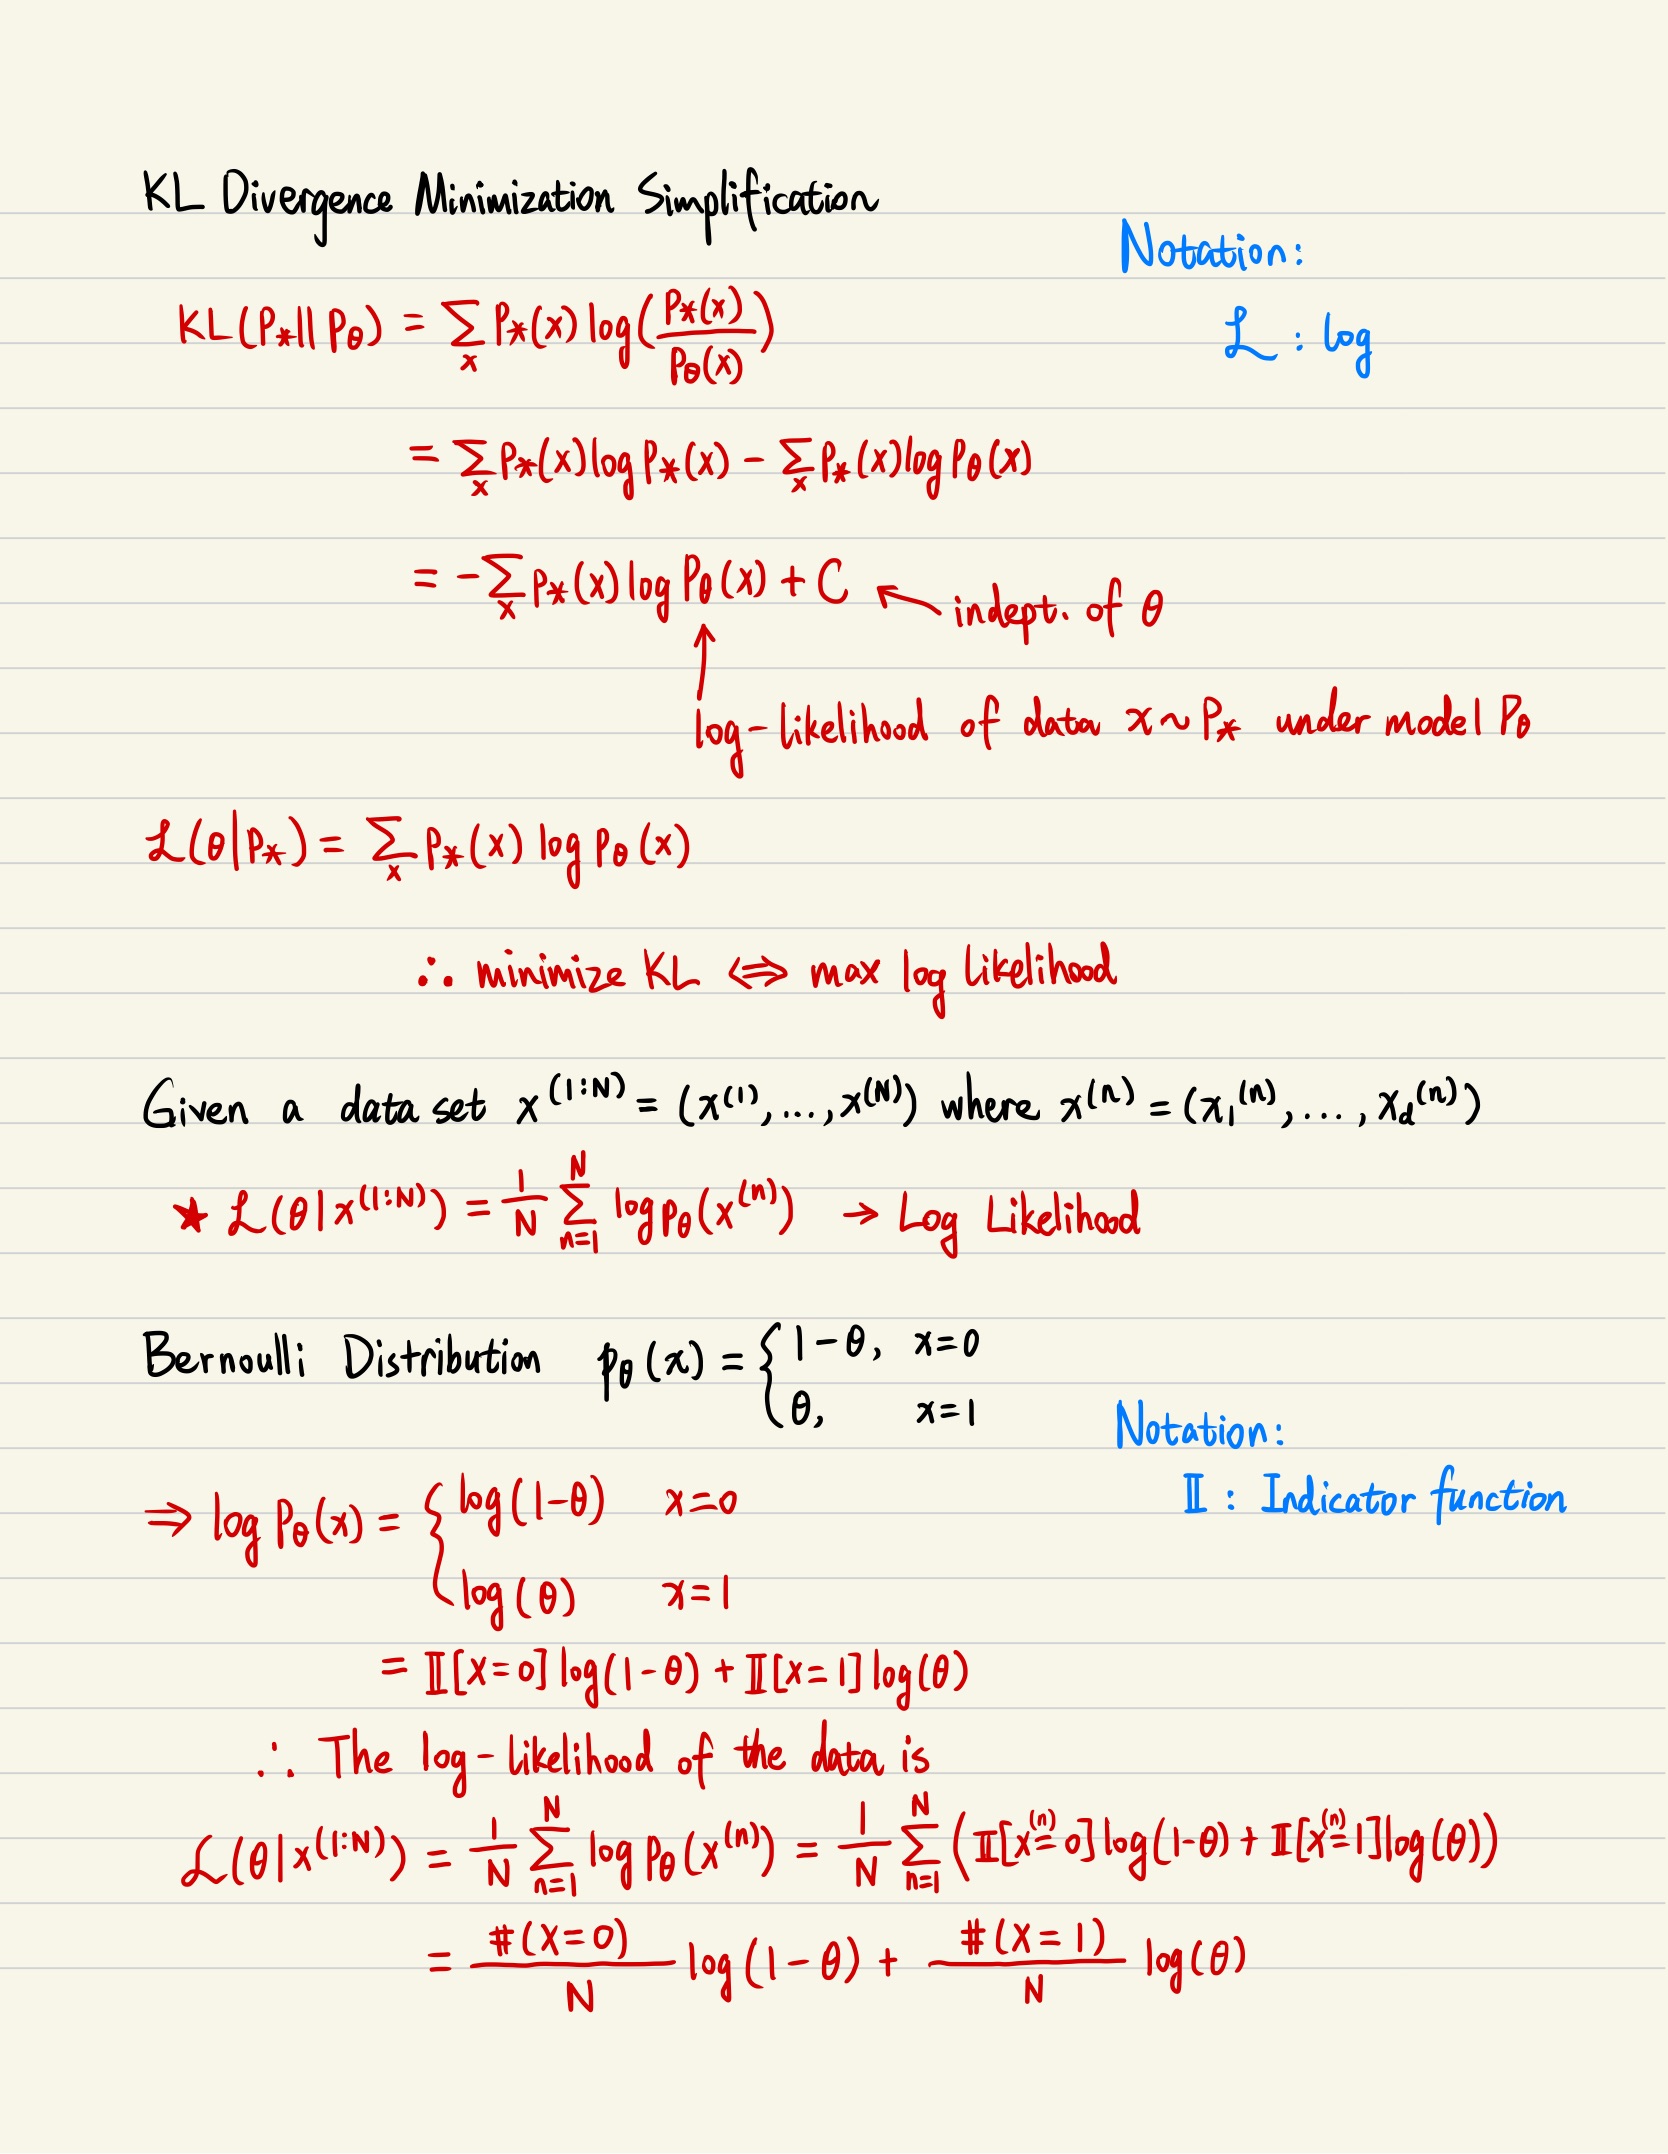 KL Divergence Minimization Simplification
Notation:
ℒ : log
KL(P_*||P_θ) = ∑_x P_*(x) log(P_*(x)/P_θ(x))
= ∑_x P_*(x) log P_*(x) - ∑_x P_*(x) log P_θ(x)
= -∑_x P_*(x) log P_θ(x) + C ← indept. of θ
↑
log-likelihood of data x ~ P_* under model P_θ
ℒ(θ|P_*) = ∑_x P_*(x) log P_θ(x)
∴ minimize KL ⇔ max log likelihood
Given a data set x^(1:N) = (x^(1), ..., x^(N)) where x^(n) = (x_1^(n), ..., x_d^(n))
★ ℒ(θ|x^(1:N)) = 1/N ∑_{n=1}^N log p_θ(x^(n)) → Log Likelihood
Bernoulli Distribution p_θ(x) = { 1-θ, x=0
θ, x=1
Notation:
𝕀 : Indicator function
⇒ log P_θ(x) = { log(1-θ) x=0
log(θ) x=1
= 𝕀[x=0] log(1-θ) + 𝕀[x=1] log(θ)
∴ The log-likelihood of the data is
ℒ(θ|x^(1:N)) = 1/N ∑_{n=1}^N log P_θ(x^(n)) = 1/N ∑_{n=1}^N (𝕀[x^(n)=0] log(1-θ) + 𝕀[x^(n)=1] log(θ))
= #(X=0)/N log(1-θ) + #(X=1)/N log(θ)